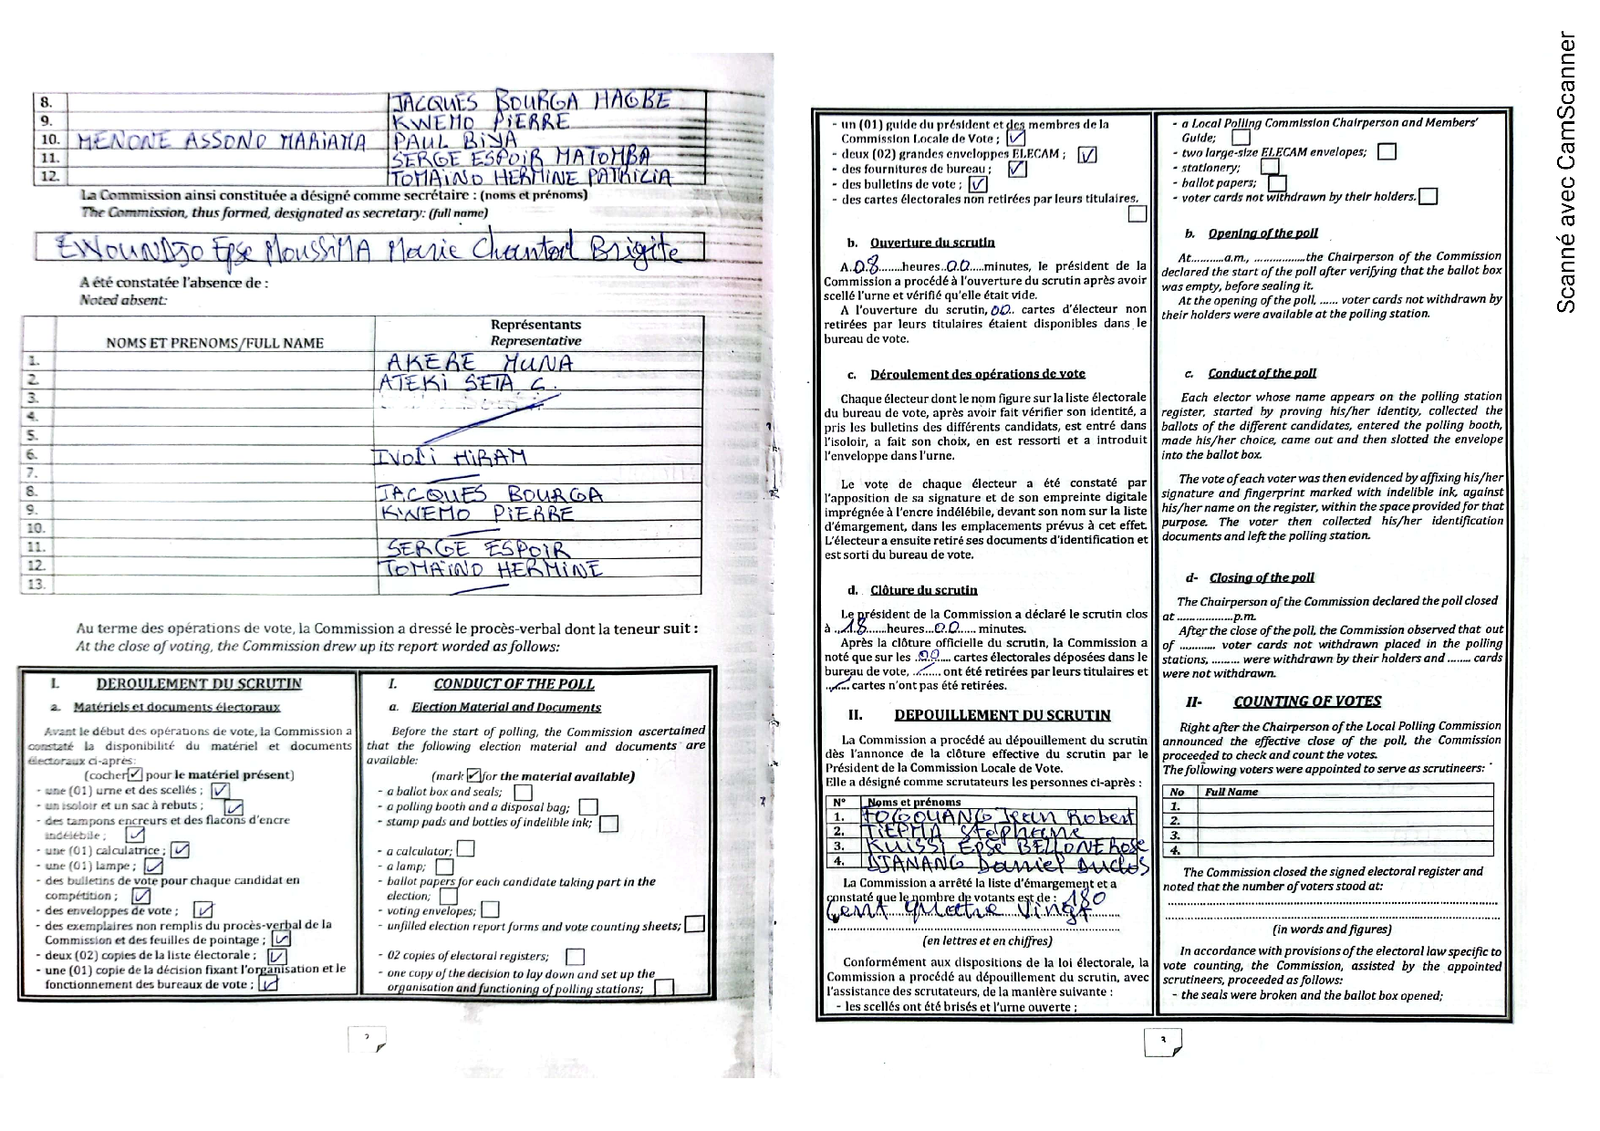 8. JACQUES BOURGA HAGBE
9. KWEMO PIERRE
10. MENONE ASSONO MARIAMA PAUL BIYA
11. SERGE ESPOIR MATOMBA
12. TOMAINO HERMINE PATRICIA
La Commission ainsi constituée a désigné comme secrétaire : (noms et prénoms)
The Commission, thus formed, designated as secretary: (full name)
EWOUNDJO Epse MoussiMA Marie Chantal Brigite
A été constatée l'absence de :
Noted absent:
NOMS ET PRENOMS/FULL NAME
Représentants
Representative
1. AKERE MUNA
2. ATEKI SETA C.
3.
4.
5.
6. HIRAM
7.
8. JACQUES BOURGA
9. KWEMO PIERRE
10.
11. SERGE ESPOIR
12. TOMAINO HERMINE
13.
Au terme des opérations de vote, la Commission a dressé le procès-verbal dont la teneur suit :
At the close of voting, the Commission drew up its report worded as follows:
I. DEROULEMENT DU SCRUTIN
a. Matériels et documents électoraux
Avant le début des opérations de vote, la Commission a
constaté la disponibilité du matériel et documents
électoraux ci-après:
(cocher ✓ pour le matériel présent)
- une (01) urne et des scellés ; ✓
- un isoloir et un sac à rebuts ; ✓
- des tampons encreurs et des flacons d'encre
indélébile ; ✓
- une (01) calculatrice ; ✓
- une (01) lampe ; ✓
- des bulletins de vote pour chaque candidat en
compétition ; ✓
- des enveloppes de vote ; ✓
- des exemplaires non remplis du procès-verbal de la
Commission et des feuilles de pointage ; ✓
- deux (02) copies de la liste électorale ; ✓
- une (01) copie de la décision fixant l'organisation et le
fonctionnement des bureaux de vote ; ✓
I. CONDUCT OF THE POLL
a. Election Material and Documents
Before the start of polling, the Commission ascertained
that the following election material and documents are
available:
(mark ✓ for the material available)
- a ballot box and seals;
- a polling booth and a disposal bag;
- stamp pads and bottles of indelible ink;
- a calculator;
- a lamp;
- ballot papers for each candidate taking part in the
election;
- voting envelopes;
- unfilled election report forms and vote counting sheets;
- 02 copies of electoral registers;
- one copy of the decision to lay down and set up the
organisation and functioning of polling stations;
- un (01) guide du président et des membres de la
Commission Locale de Vote ; ✓
- deux (02) grandes enveloppes ELECAM ; ✓
- des fournitures de bureau ; ✓
- des bulletins de vote ; ✓
- des cartes électorales non retirées par leurs titulaires.
b. Ouverture du scrutin
A.08......heures..00.....minutes, le président de la
Commission a procédé à l'ouverture du scrutin après avoir
scellé l'urne et vérifié qu'elle était vide.
A l'ouverture du scrutin, 00.. cartes d'électeur non
retirées par leurs titulaires étaient disponibles dans le
bureau de vote.
c. Déroulement des opérations de vote
Chaque électeur dont le nom figure sur la liste électorale
du bureau de vote, après avoir fait vérifier son identité, a
pris les bulletins des différents candidats, est entré dans
l'isoloir, a fait son choix, en est ressorti et a introduit
l'enveloppe dans l'urne.
Le vote de chaque électeur a été constaté par
l'apposition de sa signature et de son empreinte digitale
imprégnée à l'encre indélébile, devant son nom sur la liste
d'émargement, dans les emplacements prévus à cet effet.
L'électeur a ensuite retiré ses documents d'identification et
est sorti du bureau de vote.
d. Clôture du scrutin
Le président de la Commission a déclaré le scrutin clos
à ..18......heures...00...... minutes.
Après la clôture officielle du scrutin, la Commission a
noté que sur les .00.... cartes électorales déposées dans le
bureau de vote, ../...... ont été retirées par leurs titulaires et
../.... cartes n'ont pas été retirées.
II. DEPOUILLEMENT DU SCRUTIN
La Commission a procédé au dépouillement du scrutin
dès l'annonce de la clôture effective du scrutin par le
Président de la Commission Locale de Vote.
Elle a désigné comme scrutateurs les personnes ci-après :
N° Noms et prénoms
1. FOGOUANG Jean Robert
2. TIEPMA Stephane
3. KUISSI Epse BELLONE Rose
4. DJANANG Daniel Duclos
La Commission a arrêté la liste d'émargement et a
constaté que le nombre de votants est de : 180
Cent quatre Vingt
(en lettres et en chiffres)
Conformément aux dispositions de la loi électorale, la
Commission a procédé au dépouillement du scrutin, avec
l'assistance des scrutateurs, de la manière suivante :
- les scellés ont été brisés et l'urne ouverte ;
- a Local Polling Commission Chairperson and Members'
Guide;
- two large-size ELECAM envelopes;
- stationery;
- ballot papers;
- voter cards not withdrawn by their holders.
b. Opening of the poll
At..........a.m., ................the Chairperson of the Commission
declared the start of the poll after verifying that the ballot box
was empty, before sealing it.
At the opening of the poll, ...... voter cards not withdrawn by
their holders were available at the polling station.
c. Conduct of the poll
Each elector whose name appears on the polling station
register, started by proving his/her identity, collected the
ballots of the different candidates, entered the polling booth,
made his/her choice, came out and then slotted the envelope
into the ballot box.
The vote of each voter was then evidenced by affixing his/her
signature and fingerprint marked with indelible ink, against
his/her name on the register, within the space provided for that
purpose. The voter then collected his/her identification
documents and left the polling station.
d- Closing of the poll
The Chairperson of the Commission declared the poll closed
at .................p.m.
After the close of the poll, the Commission observed that out
of ............ voter cards not withdrawn placed in the polling
stations, ......... were withdrawn by their holders and ........ cards
were not withdrawn.
II- COUNTING OF VOTES
Right after the Chairperson of the Local Polling Commission
announced the effective close of the poll, the Commission
proceeded to check and count the votes.
The following voters were appointed to serve as scrutineers:
No Full Name
1.
2.
3.
4.
The Commission closed the signed electoral register and
noted that the number of voters stood at:
(in words and figures)
In accordance with provisions of the electoral law specific to
vote counting, the Commission, assisted by the appointed
scrutineers, proceeded as follows:
- the seals were broken and the ballot box opened;
3
Scanné avec CamScanner